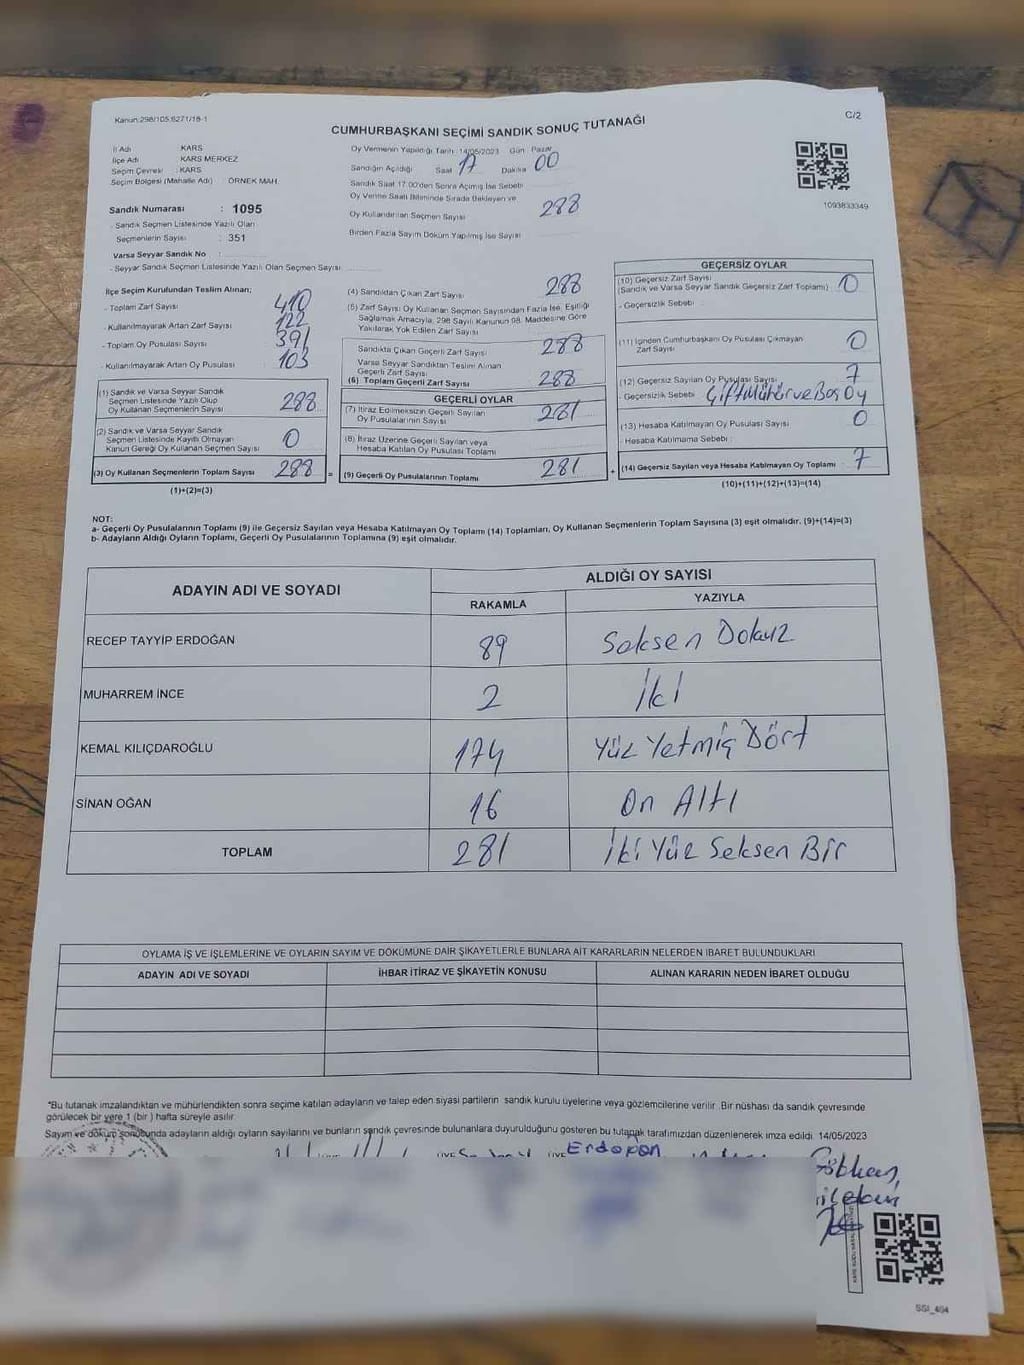 Kanun:298/105;6271/18-1
C/2
CUMHURBAŞKANI SEÇİMİ SANDIK SONUÇ TUTANAĞI
İl Adı : KARS
İlçe Adı : KARS MERKEZ
Seçim Çevresi : KARS
Seçim Bölgesi (Mahalle Adı) : ÖRNEK MAH.
Sandık Numarası : 1095
Sandık Seçmen Listesinde Yazılı Olan
Seçmenlerin Sayısı : 351
Varsa Seyyar Sandık No :
- Seyyar Sandık Seçmen Listesinde Yazılı Olan Seçmen Sayısı
Oy Vermenin Yapıldığı Tarih :14/05/2023 Gün : Pazar
Sandığın Açıldığı Saat 17 Dakika 00
Sandık Saat 17.00'den Sonra Açılmış İse Sebebi
Oy Verme Saati Bitiminde Sırada Bekleyen ve
Oy Kullandırılan Seçmen Sayısı 288
Birden Fazla Sayım Döküm Yapılmış İse Sayısı
1093833349
İlçe Seçim Kurulundan Teslim Alınan;
- Toplam Zarf Sayısı 410
- Kullanılmayarak Artan Zarf Sayısı 122
- Toplam Oy Pusulası Sayısı 391
- Kullanılmayarak Artan Oy Pusulası 103
(1) Sandık ve Varsa Seyyar Sandık
Seçmen Listesinde Yazılı Olup
Oy Kullanan Seçmenlerin Sayısı 288
(2) Sandık ve Varsa Seyyar Sandık
Seçmen Listesinde Kayıtlı Olmayan
Kanun Gereği Oy Kullanan Seçmen Sayısı 0
(3) Oy Kullanan Seçmenlerin Toplam Sayısı 288 =
(1)+(2)=(3)
(4) Sandıktan Çıkan Zarf Sayısı 288
(5) Zarf Sayısı Oy Kullanan Seçmen Sayısından Fazla İse, Eşitliği
Sağlamak Amacıyla, 298 Sayılı Kanunun 98. Maddesine Göre
Yakılarak Yok Edilen Zarf Sayısı
Sandıkta Çıkan Geçerli Zarf Sayısı 288
Varsa Seyyar Sandıktan Teslim Alınan
Geçerli Zarf Sayısı
(6) Toplam Geçerli Zarf Sayısı 288
GEÇERLİ OYLAR
(7) İtiraz Edilmeksizin Geçerli Sayılan
Oy Pusulalarının Sayısı 281
(8) İtiraz Üzerine Geçerli Sayılan veya
Hesaba Katılan Oy Pusulası Toplamı
(9) Geçerli Oy Pusulalarının Toplamı 281 +
GEÇERSİZ OYLAR
(10) Geçersiz Zarf Sayısı
(Sandık ve Varsa Seyyar Sandık Geçersiz Zarf Toplamı) 0
- Geçersizlik Sebebi :
(11) İçinden Cumhurbaşkanı Oy Pusulası Çıkmayan
Zarf Sayısı 0
(12) Geçersiz Sayılan Oy Pusulası Sayısı 7
- Geçersizlik Sebebi : Çift Mühür ve Boş Oy
(13) Hesaba Katılmayan Oy Pusulası Sayısı 0
- Hesaba Katılmama Sebebi :
(14) Geçersiz Sayılan veya Hesaba Katılmayan Oy Toplamı 7
(10)+(11)+(12)+(13)=(14)
NOT:
a- Geçerli Oy Pusulalarının Toplamı (9) ile Geçersiz Sayılan veya Hesaba Katılmayan Oy Toplamı (14) Toplamları, Oy Kullanan Seçmenlerin Toplam Sayısına (3) eşit olmalıdır. (9)+(14)=(3)
b- Adayların Aldığı Oyların Toplamı, Geçerli Oy Pusulalarının Toplamına (9) eşit olmalıdır.
ADAYIN ADI VE SOYADI
ALDIĞI OY SAYISI
RAKAMLA YAZIYLA
RECEP TAYYİP ERDOĞAN 89 Seksen Dokuz
MUHARREM İNCE 2 İki
KEMAL KILIÇDAROĞLU 174 Yüz Yetmiş Dört
SİNAN OĞAN 16 On Altı
TOPLAM 281 İki Yüz Seksen Bir
OYLAMA İŞ VE İŞLEMLERİNE VE OYLARIN SAYIM VE DÖKÜMÜNE DAİR ŞİKAYETLERLE BUNLARA AİT KARARLARIN NELERDEN İBARET BULUNDUKLARI
ADAYIN ADI VE SOYADI İHBAR İTİRAZ VE ŞİKAYETİN KONUSU ALINAN KARARIN NEDEN İBARET OLDUĞU
*Bu tutanak imzalandıktan ve mühürlendikten sonra seçime katılan adayların ve talep eden siyasi partilerin sandık kurulu üyelerine veya gözlemcilerine verilir. Bir nüshası da sandık çevresinde
görülecek bir yere 1 (bir ) hafta süreyle asılır.
Sayım ve döküm sonucunda adayların aldığı oyların sayılarını ve bunların sandık çevresinde bulunanlara duyurulduğunu gösteren bu tutanak tarafımızdan düzenlenerek imza edildi. 14/05/2023
Erdoğan
Gökhan
SSI_464